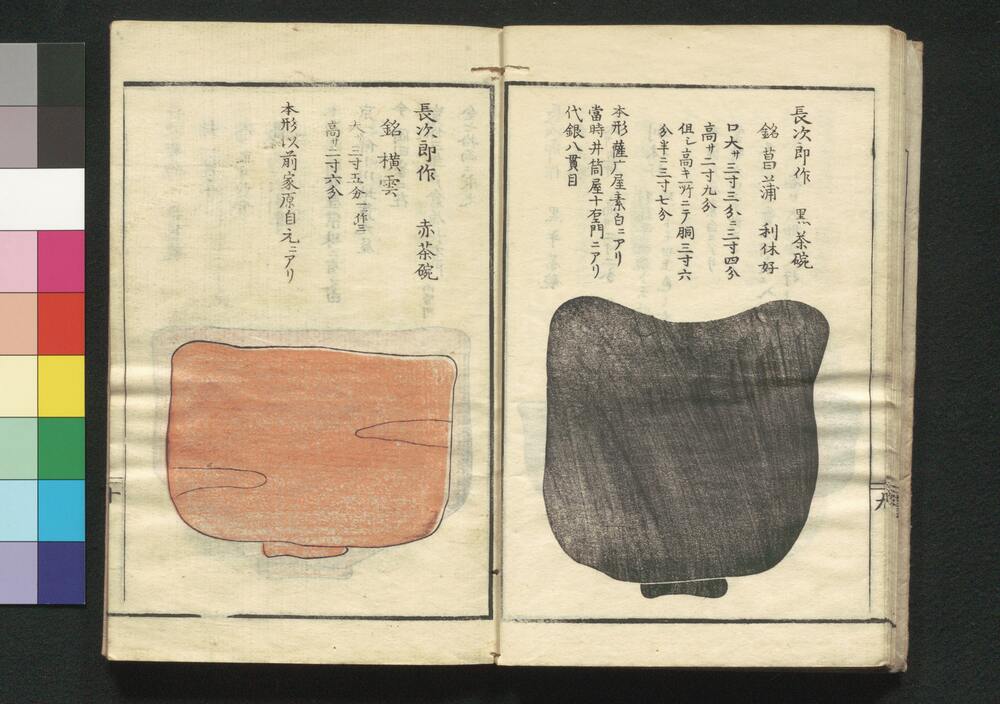 長次郎作　黒茶碗
銘菖蒲　利休好
口大サ三寸三分ニ三寸四分
高サ二寸九分
但シ高キ所ニテ胴三寸六
分半ニ三寸七分
本形薩广屋素白ニアリ
當時井筒屋十右門ニアリ
代銀八貫目
長次郎作　赤茶碗
銘　横雲
大サ三寸五分
高サ二寸六分
本形以前家原自元ニアリ